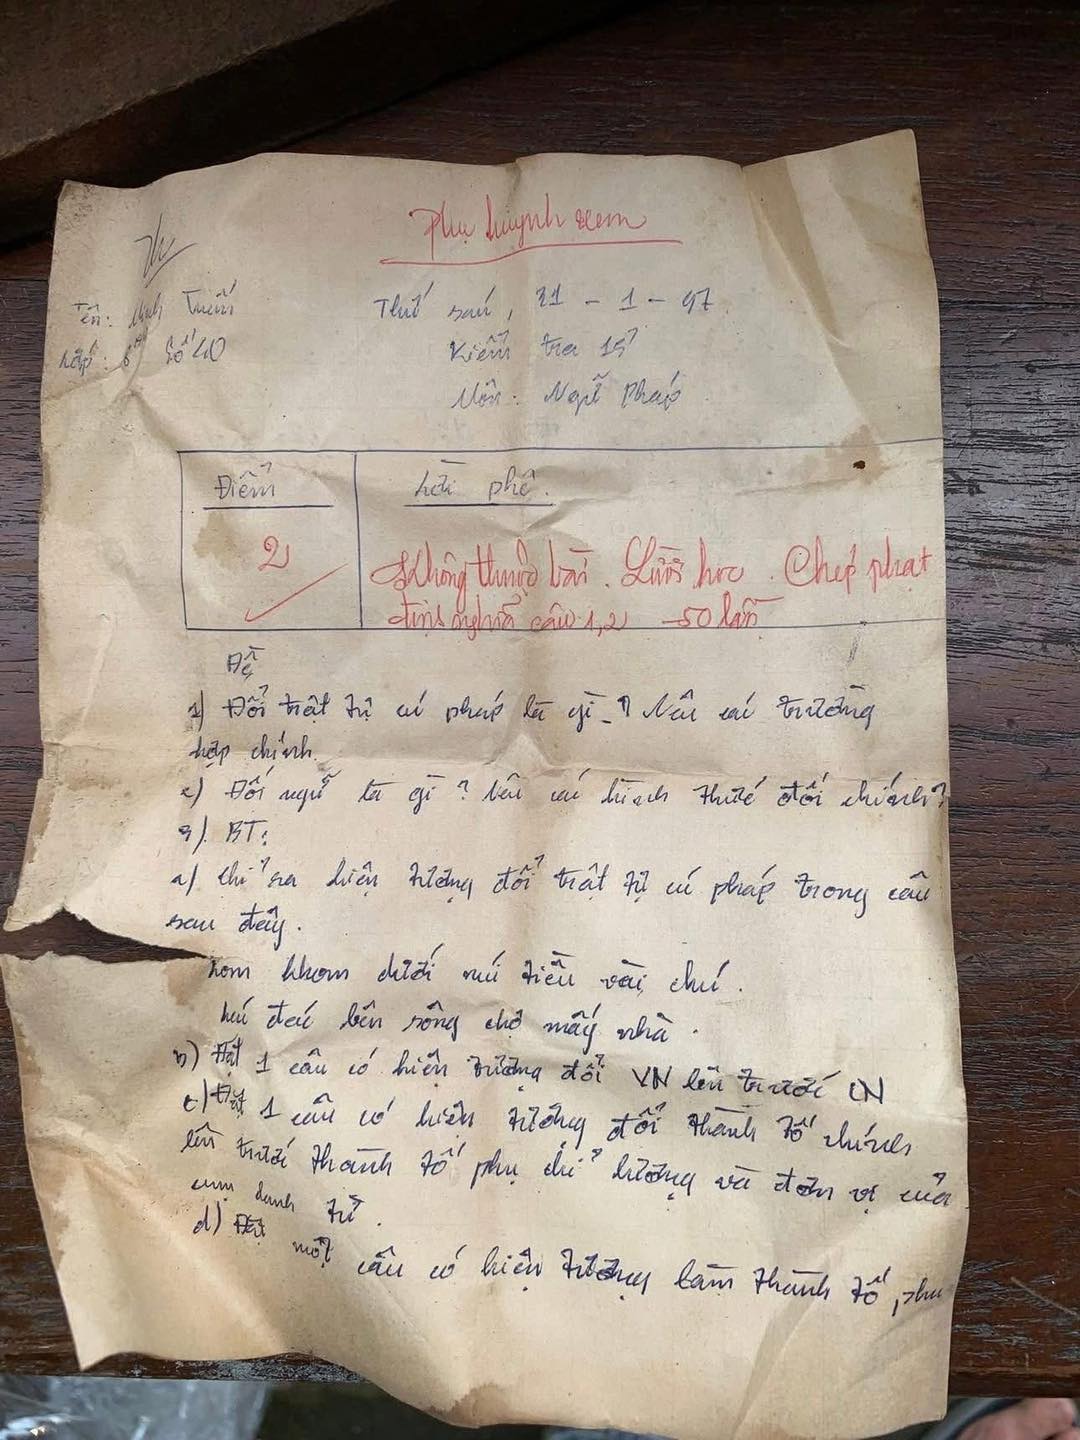 Phụ huynh xem
Tên: Minh Tuấn
Lớp: 8 Số 40
Thứ sáu, 31 - 1 - 97
Kiểm tra 15'
Môn: Ngữ Pháp
Điểm
Lời phê.
2
Không thuộc bài. Lười học. Chép phạt
định nghĩa câu 1, 2 50 lần
Đề
1) Đổi trật tự cú pháp là gì? Nêu các trường
hợp chính.
2) Đối ngữ là gì? Nêu các hình thức đối chính?
3) BT:
a) Chỉ ra hiện tượng đổi trật tự cú pháp trong câu
sau đây.
Lom khom dưới núi tiều vài chú.
Lác đác bên sông chợ mấy nhà.
b) Đặt 1 câu có hiện tượng đổi VN lên trước CN
c) Đặt 1 câu có hiện tượng đổi thành tố chính
lên trước thành tố phụ chỉ lượng và đơn vị của
cụm danh từ.
d) Đặt một câu có hiện tượng làm thành tố phụ